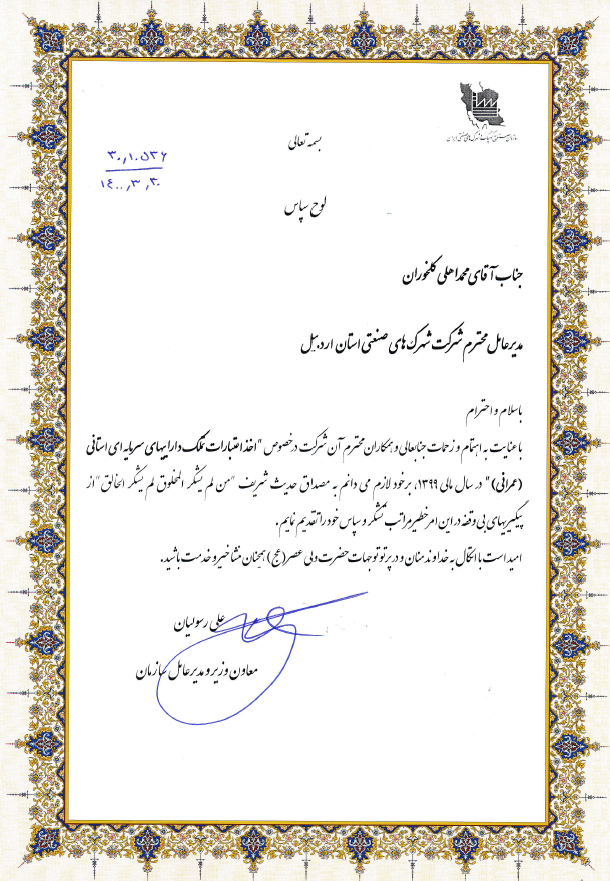 سازمان صنایع کوچک و شهرک های صنعتی ایران
بسمه تعالی
۱۴۰۰٫۳٫۳۰
لوح سپاس
جناب آقای محمد اهلی کلخوران
مدیرعامل محترم شرکت شهرک های صنعتی استان اردبیل
باسلام و احترام
باعنایت به اهتمام و زحمات جنابعالی و همکاران محترم آن شرکت درخصوص "اخذ اعتبارات تملک داراییهای سرمایه ای استانی
(عمرانی)" در سال مالی ۱۳۹۹، برخود لازم می دانم به مصداق حدیث شریف "من لم یشکر المخلوق لم یشکر الخالق" از
پیگیریهای بی وقفه در این امر خطیر مراتب تشکر و سپاس خود را تقدیم نمایم.
امید است با اتکال به خداوند منان و در پرتو توجهات حضرت ولی عصر(عج) همچنان منشا خیر و خدمت باشید.
علی رسولیان
معاون وزیر و مدیرعامل سازمان